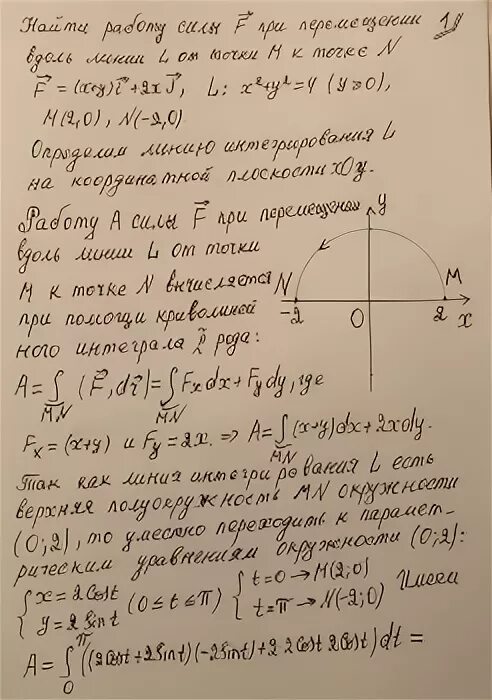 Найти работу силы F⃗ при перемещении
вдоль линии L от точки M к точке N
F⃗ = (x+y)i⃗ + 2xj⃗, L: x²+y²=4 (y≥0),
M(2,0), N(-2,0)
Определим линию интегрирования L
на координатной плоскости xOy.
Работу A силы F⃗ при перемещении
вдоль линии L от точки
M к точке N вычисляется
при помощи криволиней
ного интеграла 2 рода:
y
N
M
-2
O
2
x
A = ∫ (F⃗, dr⃗) = ∫ Fxdx + Fydy, где
MN MN
Fx = (x+y) и Fy = 2x. ⇒ A = ∫ (x+y)dx + 2xdy.
MN
Так как линия интегрирования L есть
верхняя полуокружность MN окружности
(0;2), то уместно переходить к парамет-
рическим уравнениям окружности (0;2):
{ x = 2 Cost
y = 2 Sint (0 ≤ t ≤ π) { t=0 → M(2;0)
t=π → N(-2;0) Имеем
A = ∫₀^π ((2Cost + 2Sint)(-2Sint) + 2·2Cost·2Cost) dt =